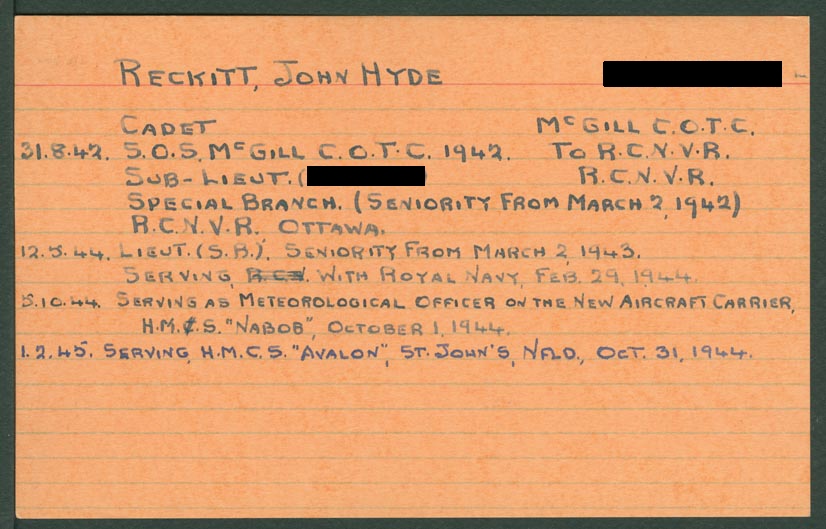 RECKITT, JOHN HYDE
CADET McGILL C.O.T.C.
31.8.42. S.O.S. McGILL C.O.T.C. 1942. TO R.C.N.V.R.
SUB-LIEUT. ( ) R.C.N.V.R.
SPECIAL BRANCH. (SENIORITY FROM MARCH 2, 1942)
R.C.N.V.R. OTTAWA.
12.5.44. LIEUT. (S.B.), SENIORITY FROM MARCH 2, 1943.
SERVING R.C.N. WITH ROYAL NAVY, FEB. 29, 1944.
5.10.44. SERVING AS METEOROLOGICAL OFFICER ON THE NEW AIRCRAFT CARRIER,
H.M.C.S. "NABOB", OCTOBER 1, 1944.
1.2.45. SERVING, H.M.C.S. "AVALON", ST. JOHN'S, NFLD., OCT. 31, 1944.